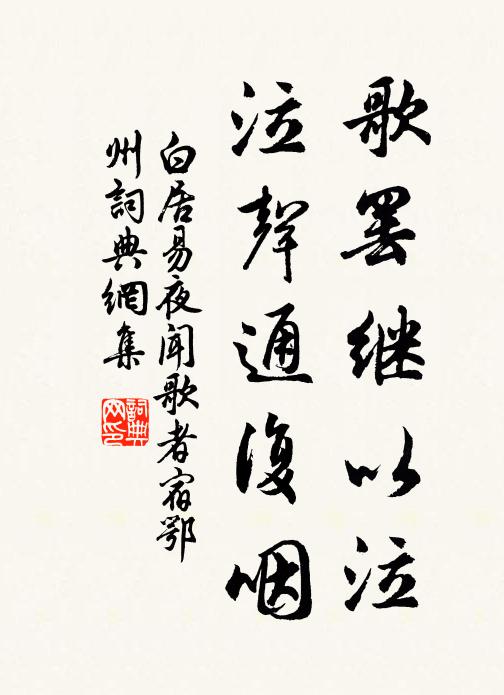 歌罢継以泣
泣聲通復咽
白居易夜闻歌者宿鄂
州詞典網集
詞典网印